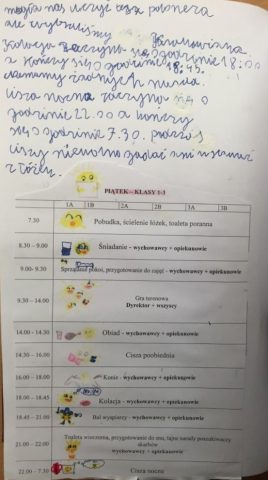 nas uczyć
ale wybraliśmy
Kolacja zaczyna się o godzinie 18:00
a kończy się o godzinie 18,45.
Cisza nocna zaczyna się o
godzinie 22.00 a kończy
się o godzinie 7.30. podczas
ciszy niewolno gadać ani
z łóżek.
PIĄTEK – KLASY 1-3
1A 1B 2A 2B 3A 3B
7.30 Pobudka, ścielenie łóżek, toaleta poranna
8.30 – 9.00 Śniadanie - wychowawcy + opiekunowie
9.00- 9.30 Sprzątanie pokoi, przygotowanie do zajęć - wychowawcy + opiekunowie
9.30 – 14.00 Gra terenowa
Dyrektor + wszyscy
14.00 – 14.30 Obiad - wychowawcy + opiekunowie
14.30 – 16.00 Cisza poobiednia
16.00 – 18.00 Konie - wychowawcy + opiekunowie
18.00 – 18.45 Kolacja - wychowawcy + opiekunowie
18.45 – 21.00 Bal wyspiarzy - wychowawcy + opiekunowie
21.00 – 22.00 Toaleta wieczorna, przygotowanie do snu, tajne narady poszukiwaczy
skarbów
wychowawcy + opiekunowie
22.00 – 7.30 Cisza nocna